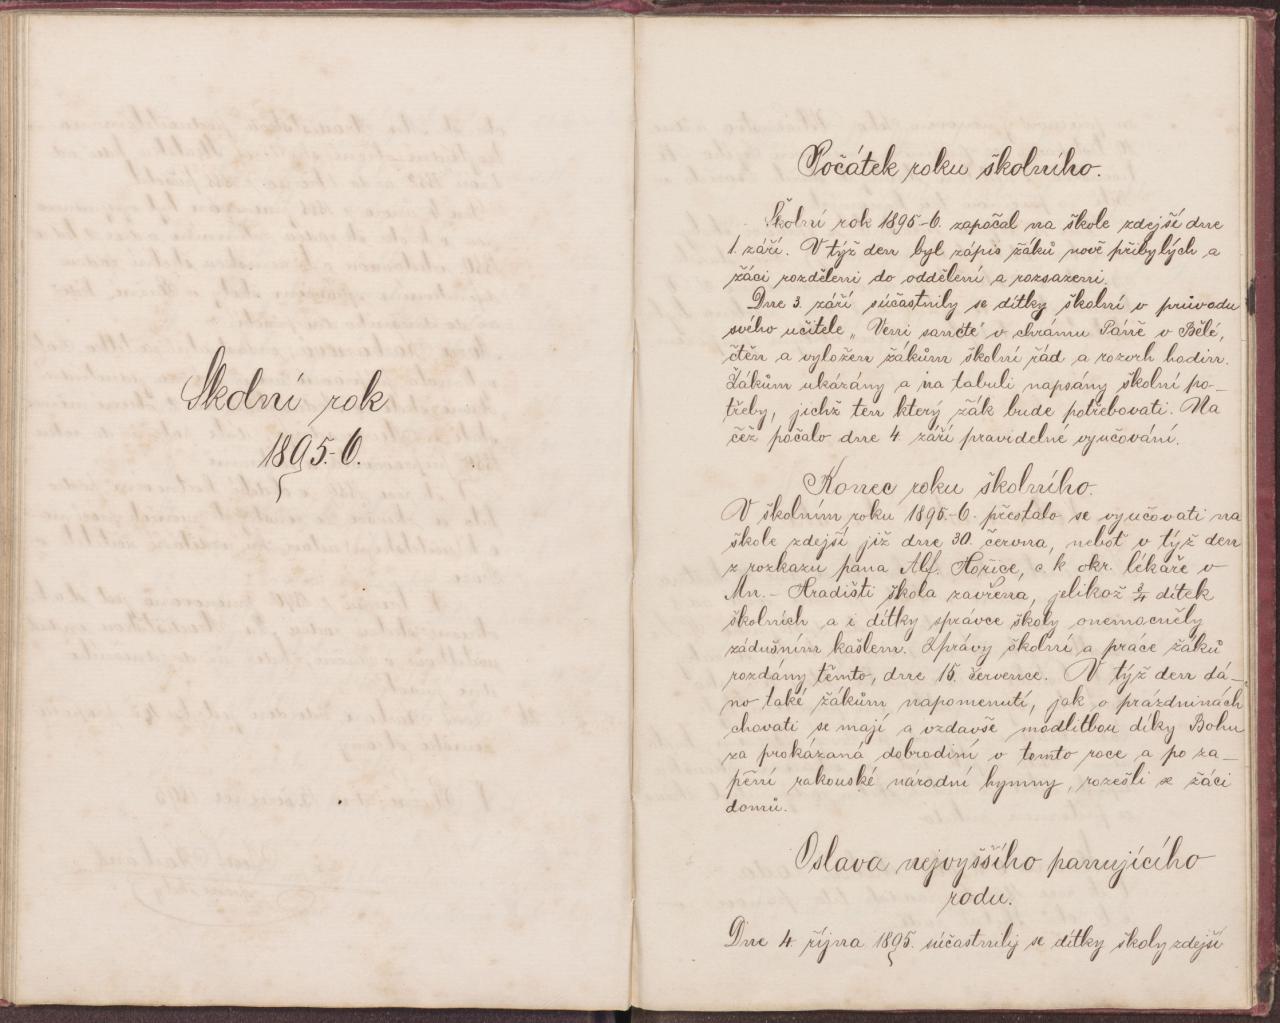 Školní rok
1895-6.
Počátek roku školního.
Školní rok 1895-6. započal na škole zdejší dne
1. září. V týž den byl zápis žáků nově přibylých a
žáci rozděleni do oddělení a rozsazeni.
Dne 3. září súčastnily se dítky školní v průvodu
svého učitele „Veni sancte" v chrámu Páně v Bělé,
čtěn a vyložen žákům školní řád a rozvrh hodin.
Žákům ukázány a na tabuli napsány školní po-
třeby, jichž ten který žák bude potřebovati. Na
čež počalo dne 4. září pravidelné vyučování.
Konec roku školního.
V školním roku 1895-6. přestalo se vyučovati na
škole zdejší již dne 30. června, neboť v týž den
z rozkazu pana Alf. Hořice, c. k. okr. lékaře v
Mn.- Hradišti škola zavřena, jelikož 3/4 dítek
školních a i dítky správce školy onemocněly
zádušním kašlem. Zprávy školní a práce žáků
rozdány těmto, dne 15. července. V týž den dá-
no také žákům napomenutí, jak o prázdninách
chovati se mají a vzdavše modlitbou díky Bohu
za prokázaná dobrodiní v tomto roce a po za-
pění rakouské národní hymny, rozešli se žáci
domů.
Oslava nejvyššího panujícího
rodu.
Dne 4. října 1895. súčastnily se dítky školy zdejší